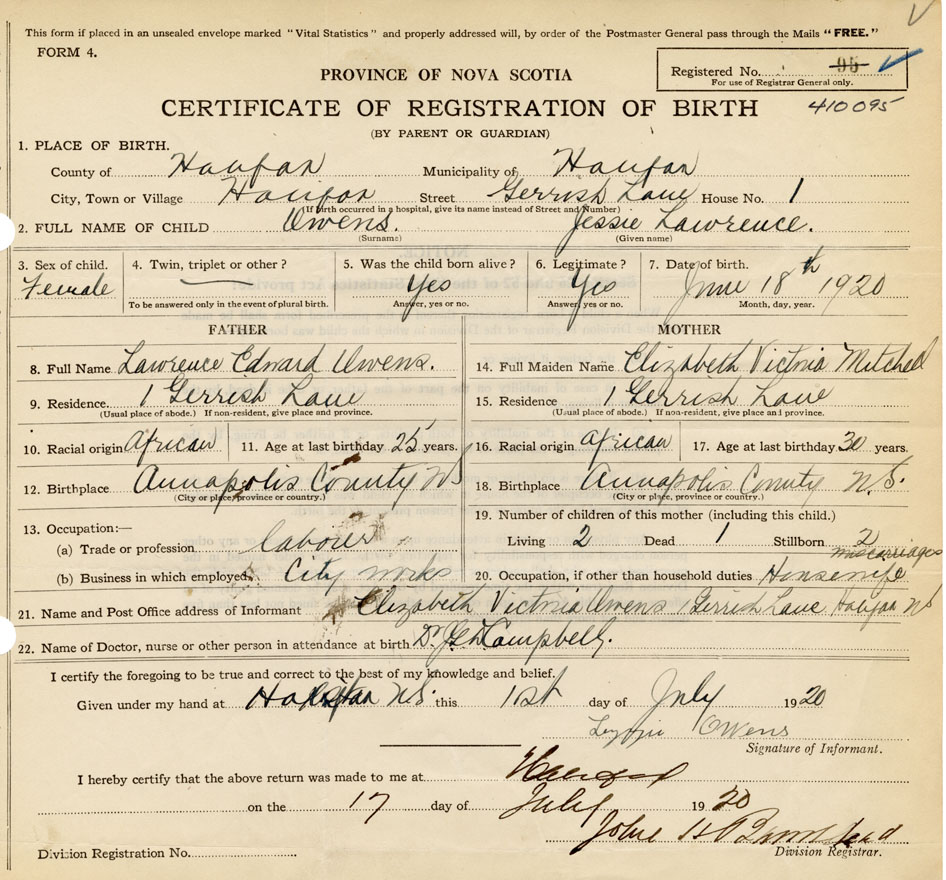 This form if placed in an unsealed envelope marked "Vital Statistics" and properly addressed will, by order of the Postmaster General pass through the Mails "FREE."
FORM 4.
Registered No. 95
For use of Registrar General only.
410095
PROVINCE OF NOVA SCOTIA
CERTIFICATE OF REGISTRATION OF BIRTH
(BY PARENT OR GUARDIAN)
1. PLACE OF BIRTH.
County of Halifax Municipality of Halifax
City, Town or Village Halifax Street Gerrish Lane House No. 1
(If birth occurred in a hospital, give its name instead of Street and Number)
2. FULL NAME OF CHILD Owens. Jessie Lawrence.
(Surname) (Given name)
3. Sex of child. 4. Twin, triplet or other? 5. Was the child born alive? 6. Legitimate? 7. Date of birth.
Female Yes Yes June 18th 1920
To be answered only in the event of plural birth. Answer, yes or no. Answer, yes or no. Month, day, year.
FATHER MOTHER
8. Full Name Lawrence Edward Owens. 14. Full Maiden Name Elizabeth Victoria Mitchell
9. Residence. 1 Gerrish Lane 15. Residence 1 Gerrish Lane
(Usual place of abode.) If non-resident, give place and province. (Usual place of abode.) If non-resident, give place and province.
10. Racial origin African 11. Age at last birthday 25 years. 16. Racial origin African 17. Age at last birthday 30 years.
12. Birthplace Annapolis County NS 18. Birthplace Annapolis County N.S.
(City or place, province or country.) (City or place, province or country.)
13. Occupation:— 19. Number of children of this mother (including this child.)
(a) Trade or profession labourer Living 2 Dead 1 Stillborn 2 miscarriages
(b) Business in which employed. City works 20. Occupation, if other than household duties Housewife
21. Name and Post Office address of Informant Elizabeth Victoria Owens 1 Gerrish Lane Halifax NS
22. Name of Doctor, nurse or other person in attendance at birth Dr Campbell.
I certify the foregoing to be true and correct to the best of my knowledge and belief.
Given under my hand at Halifax N.S. this 1st day of July 1920
Owens
Signature of Informant.
I hereby certify that the above return was made to me at Halifax
on the 17 day of July 1920
John H
Division Registration No. Division Registrar.